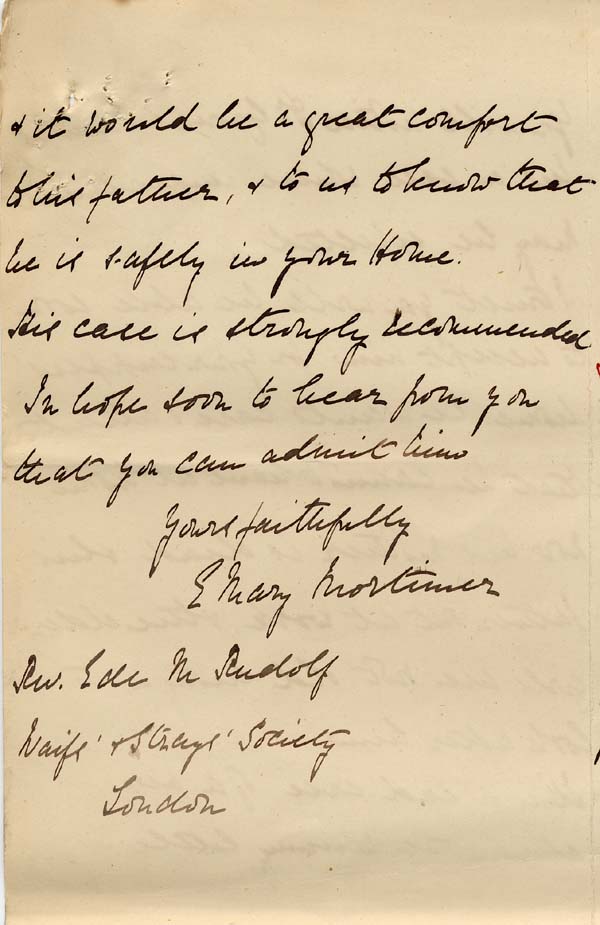 & it would be a great comfort
to his father, & to us to know that
he is safely in your Home.
His case is strongly recommended
In hope soon to hear from you
that you can admit him
Yours faithfully
E Mary Mortimer
Rev. Ede M Rudolf
Waifs' & Strays' Society
London